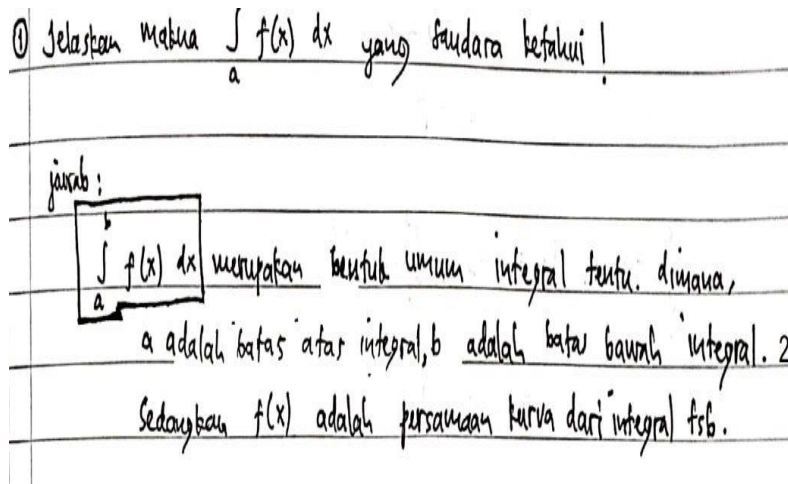 ① Jelaskan makna ∫ f(x) dx yang saudara ketahui !
a
jawab :
b
∫ f(x) dx merupakan bentuk umum integral tentu. dimana,
a
a adalah batas atas integral, b adalah batas bawah integral. 2
Sedangkan f(x) adalah persamaan kurva dari integral tsb.